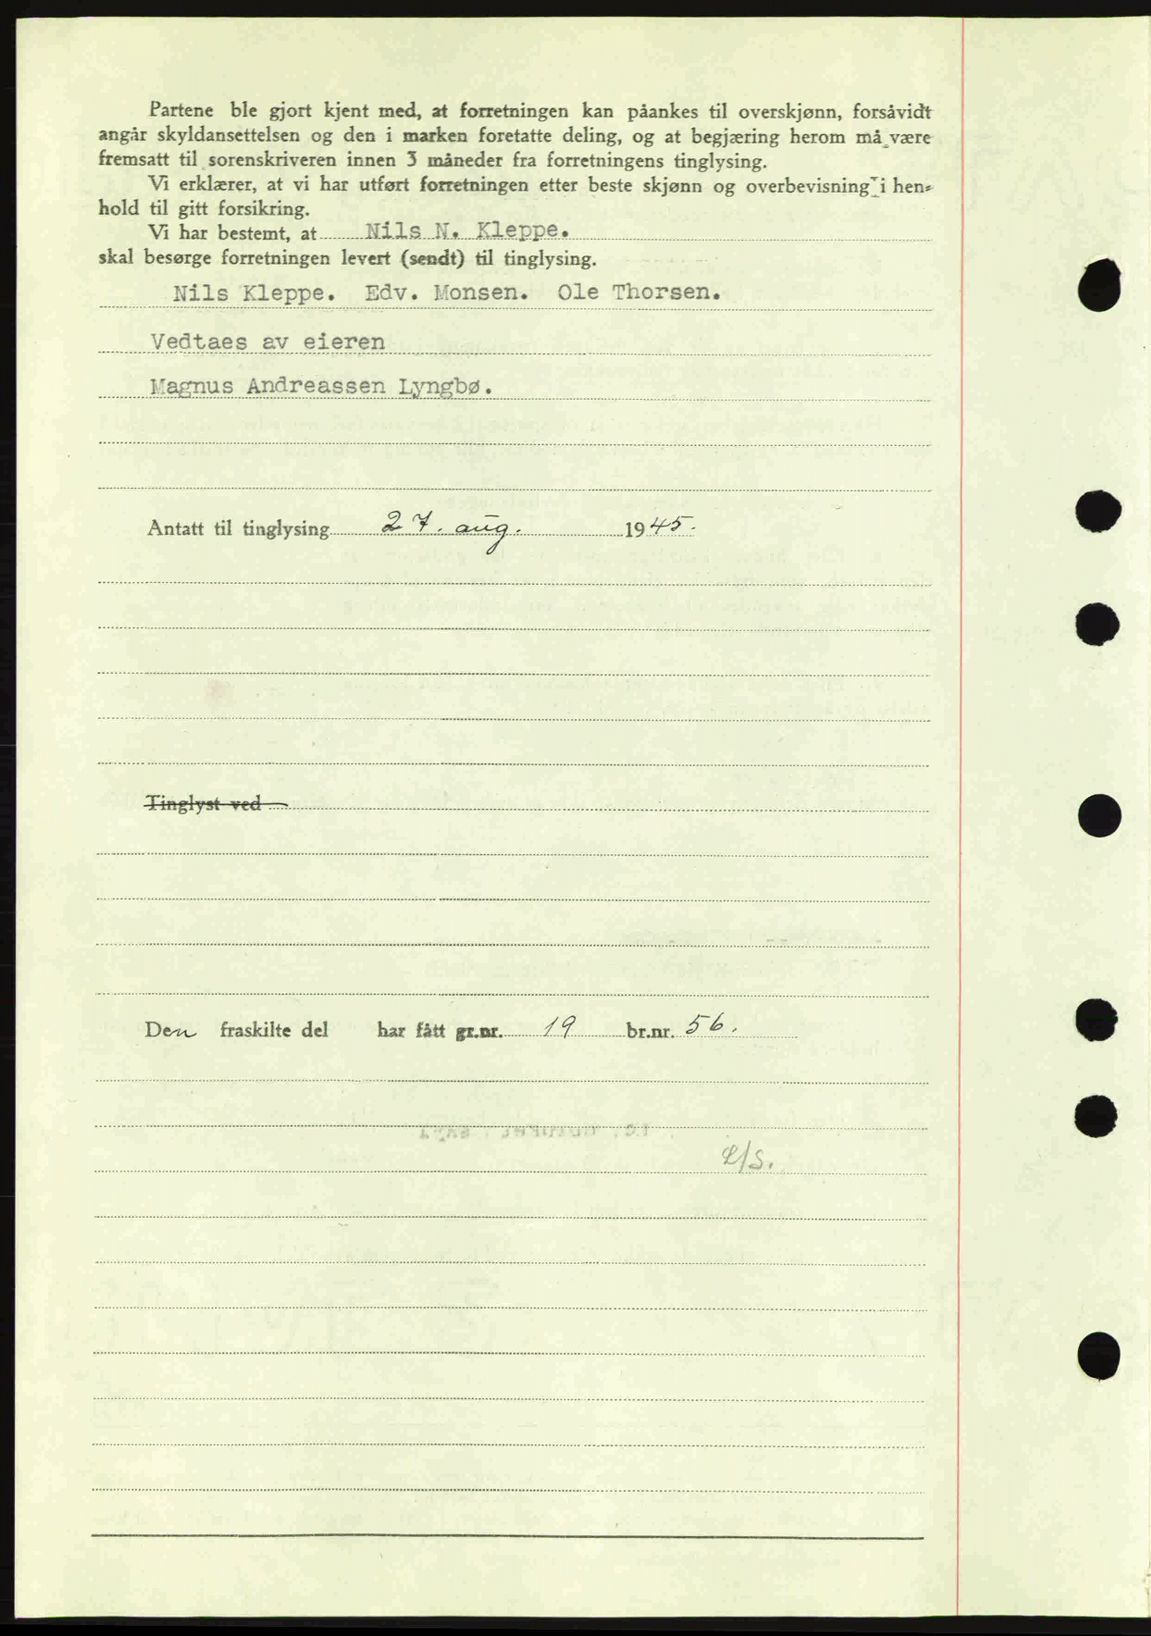 Partene ble gjort kjent med, at forretningen kan påankes til overskjønn, forsåvidt
angår skyldansettelsen og den i marken foretatte deling, og at begjæring herom må være
fremsatt til sorenskriveren innen 3 måneder fra forretningens tinglysing.
Vi erklærer, at vi har utført forretningen etter beste skjønn og overbevisning i hen-
hold til gitt forsikring.
Vi har bestemt, at Nils N. Kleppe.
skal besørge forretningen levert (sendt) til tinglysing.
Nils Kleppe. Edv. Monsen. Ole Thorsen.
Vedtaes av eieren
Magnus Andreassen Lyngbø.
Antatt til tinglysing 27. aug. 1945.
Tinglyst ved
Den fraskilte del har fått gr.nr. 19 br.nr. 56.